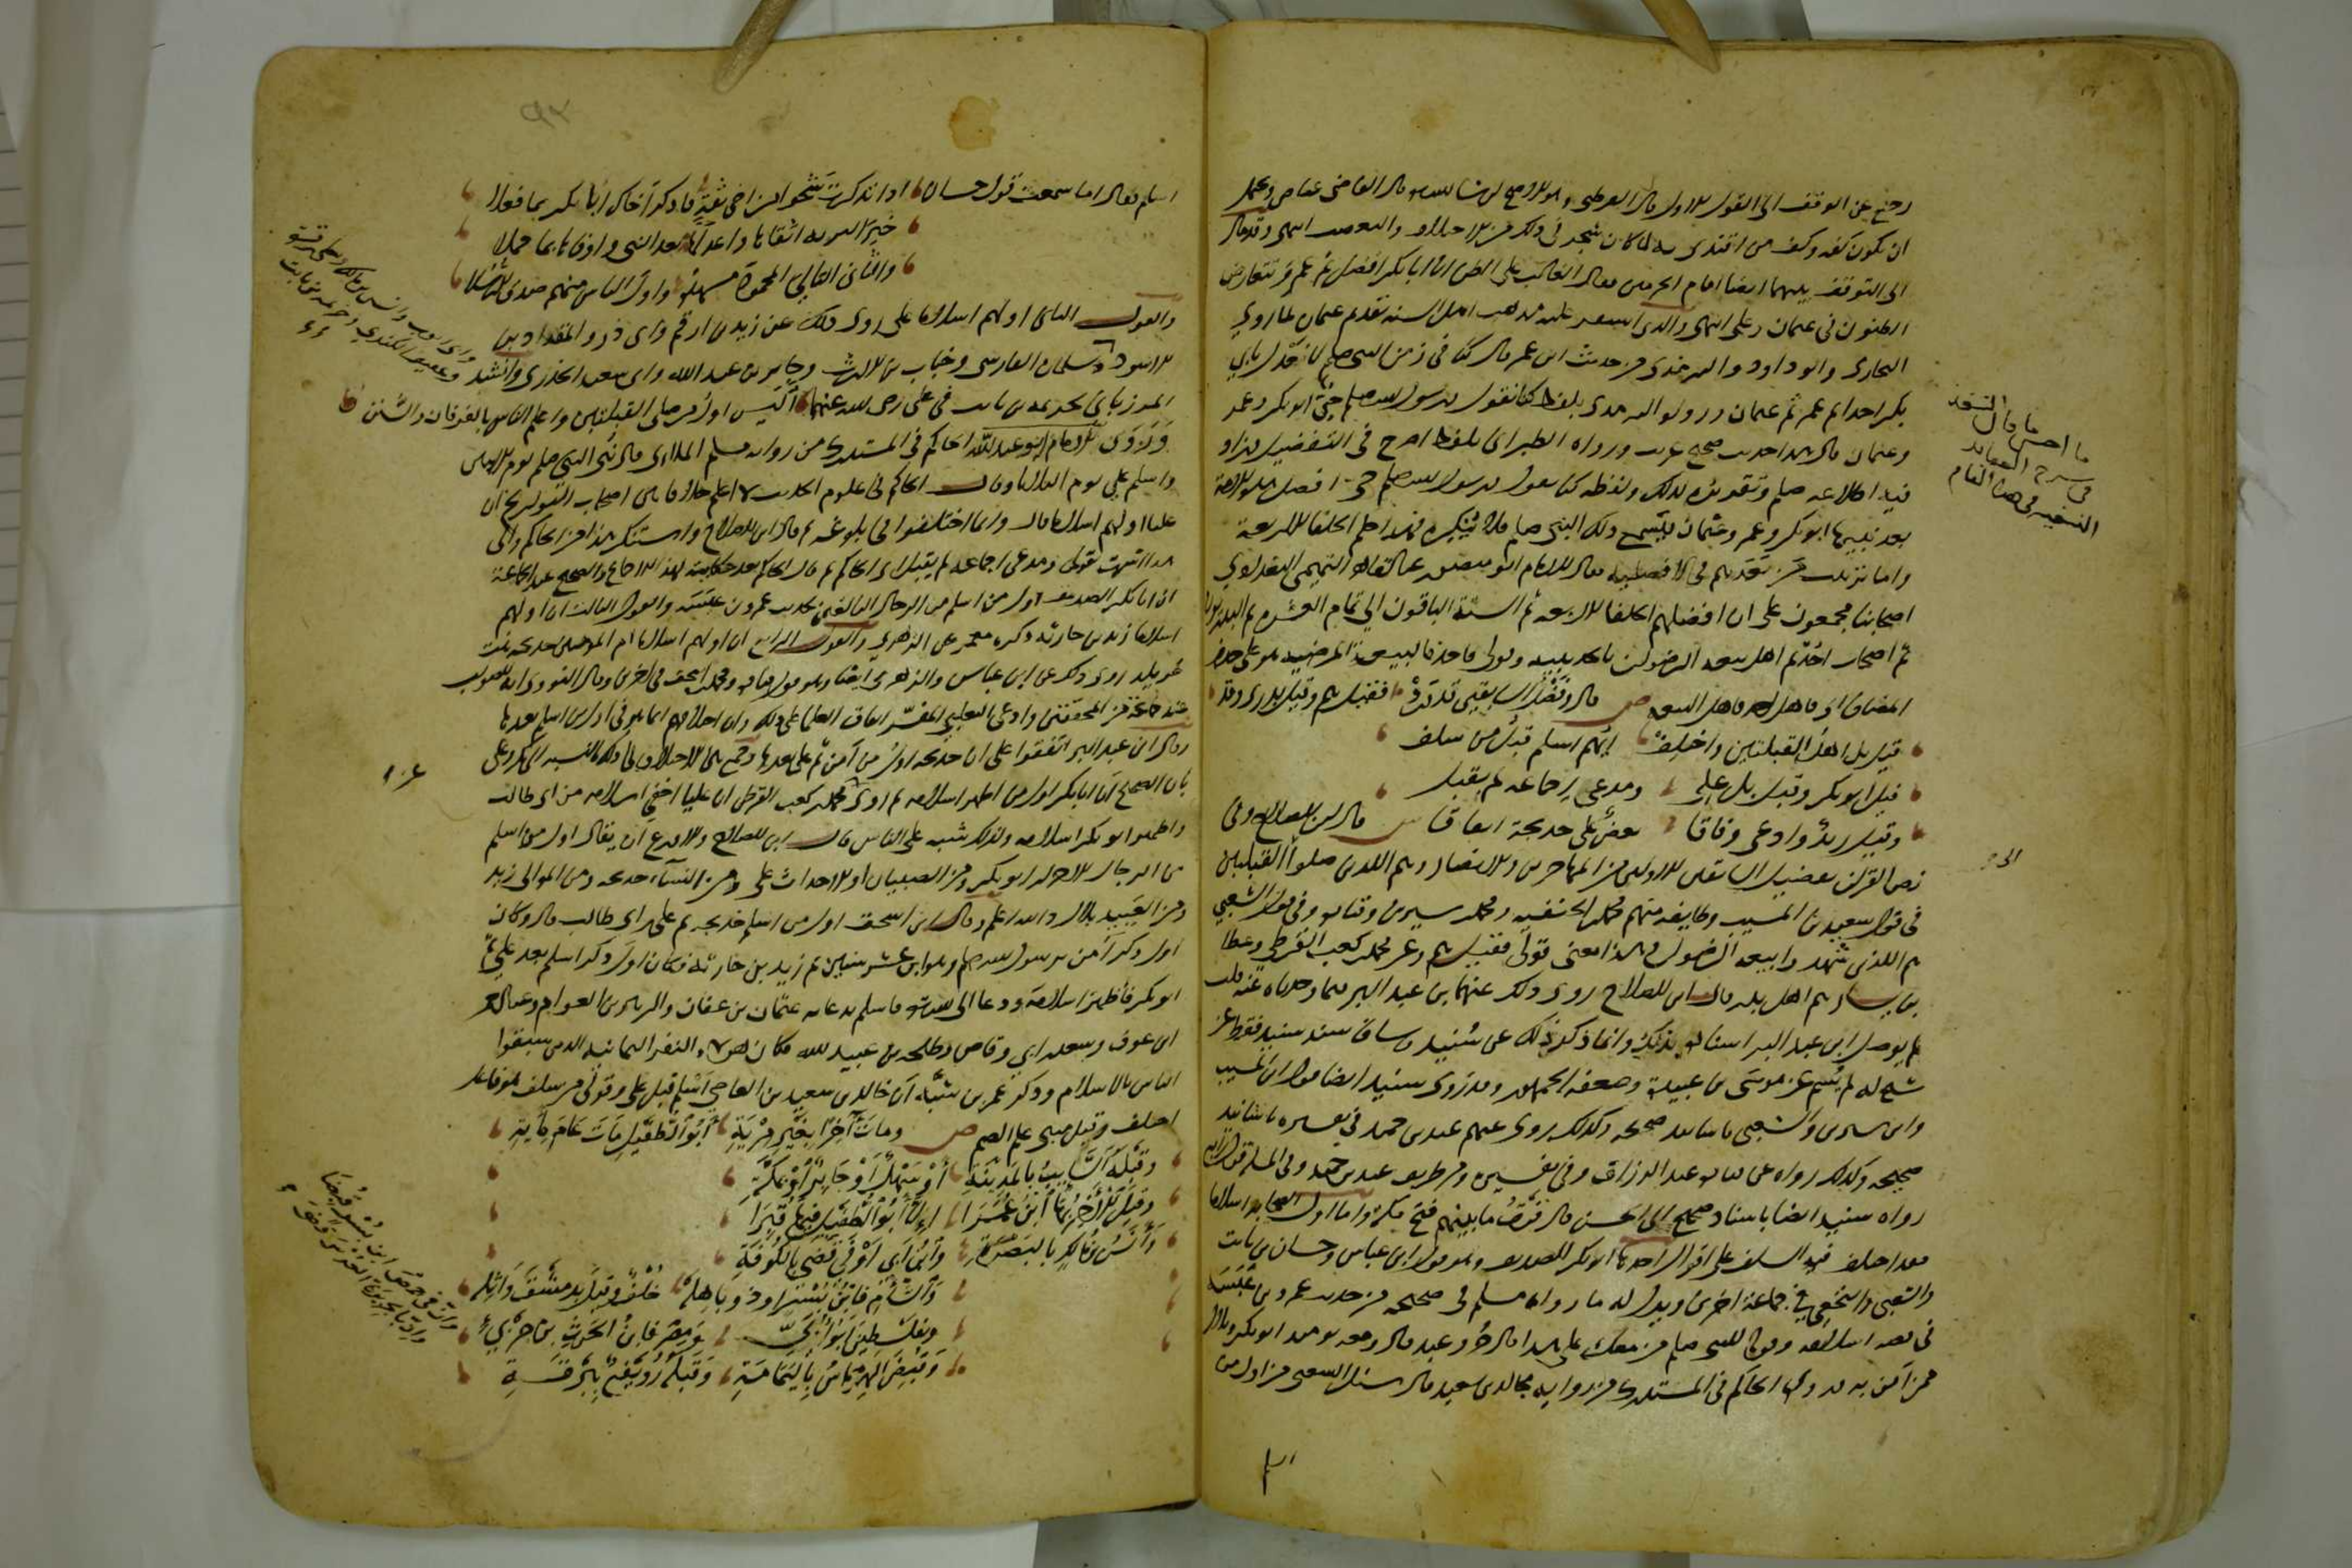 رجع عن الوقف الى القول الاول قال القرطبى وهو الاصح ان شا الله قال القاضى عياض ويحتمل
ان يكون كفه وكف من اقتدى به لما كان شجر فى ذلك من الاختلاف والتعصب انتهى وقد مال
الى التوقف بينهما ايضا امام الحرمين فقال الغالب على الظن ان ابا بكر افضل ثم عمر وتتعارض
الظنون فى عثمان وعلى انتهى والذى استقر عليه مذهب اهل السنة تقديم عثمان لما روى
البخارى وابو داود والترمذى من حديث ابن عمر قال كنا فى زمن النبى صلعم لا نعدل بابى
بكر احدا ثم عمر ثم عثمان ورواه الترمذى بلفظ كنا نقول ورسول الله صلعم حىّ ابو بكر وعمر
وعثمان قال هذا حديث صحيح غريب ورواه الطبرانى بلفظ اصرح فى التفضيل وزاد
فيه اطلاعه صلعم وتقريره لذلك ولفظه كنا نقول ورسول الله صلعم حى افضل هذه الامة
بعد نبيها ابو بكر وعمر وعثمان فيسمع ذلك النبى صلعم فلا ينكره فهذا حكم الخلفا الاربعة
واما ترتيب من بعدهم فى الافضلية فقال الامام ابو منصور عبد القاهر التميمى البغدادى
اصحابنا مجمعون على ان افضلهم الخلفا الاربعه ثم الستة الباقون الى تمام العشرة ثم البدريون
ثم اصحاب احُد ثم اهل بيعه الرضوان بالحديبيه وقولى فاحد فالبيعة المرضيه هو على حذف
المضاف اى فاهل احد فاهل البيعه ص قال وفَضْلُ السابقين قد وَرَدْ فقيل هم وقيل بدرى وقد
قيل بل اهل القبلتين واختلف ايّهم اسلم قبلُ من سلف
قيل ابو بكر وقيل بل على ومدعى اجماعه لم يقبل
وقيل زيدٌ وادعى وفاقا بعضٌ على خديجة اتفاقا ش قال ابن الصلاح وفى
نص القران تفضيل السابقين الاولين من المهاجرين والانصار وهم الذين صلوا القبلتين
فى قول سعيد بن المسيب وطايفه منهم محمد بن الحنفيه ومحمد بن سيرين وقتاده وفى قول الشعبى
هم الذين شهدوا بيعه الرضوان وهذا معنى قولى فقيل هم وعن محمد بن كعب القرظى وعطا
بن يسار هم اهل بدر قال ابن الصلاح روى ذلك عنهما بن عبد البر فيما وجدناه عنه قلت
لم يوصل ابن عبد البر اسناده بذلك وانما ذكر ذلك عن سُنيد وساق سند سنيد فقط عن
شيخ له لم يُسم عن موسى بن عبيدة وضعفه الجمهور وقد روى سنيد ايضا قول ابن المسيب
وابن سيرين والشعبى باسانيد صحيحه وكذلك روى عنهم عبد بن حميد فى تفسيره باسانيد
صحيحه وكذلك رواه عن قتاده عبد الرزاق فى تفسيره ومن طريقه عبد بن حميد وفى المسله قول رابع
رواه سنيد ايضا باسناد صحيح الى الحسن قال فَرْقُ ما بينهم فتح مكة واما اول الصحابه اسلاما
فقد اختلف فيه السلف على اقوال احدها ابو بكر الصديق وهو قول ابن عباس وحسان بن ثابت
والشعبى والنخعى فى جماعة اخرين ويدل له ما رواه مسلم فى صحيحه من حديث عمرو بن عَبَسَه
فى قصه اسلامه وقوله للنبى صلعم من معك على هذا قال حُر وعبد قال ومعه يوميذ ابو بكر وبلال
ممن آمن به وروى الحاكم فى المستدرك من رواية مجالد بن سعيد قال سئل الشعبى من اول من
ما احسن ما قال السعد
فى شرح العقائد
النسفيه فى هذا المقام
اسلم فقال اما سمعت قول حسان اذا تذكرتَ شَجْوا من اخى ثقةٍ فاذكر اخاك ابا بكر بما فعلا
خيرَ البريه اتقاها واعدلَها بعد النبى واوفاها بما حملا
والثانى التالىَ المحمودَ مشهدُه واول الناس منهم صدق الرسُلا
والقول الثانى اولهم اسلاما على روى ذلك عن زيد بن ارقم وابى ذر والمقداد بن
الاسود وسلمان الفارسى وخباب بن الارت وجابر بن عبد الله وابى سعيد الخدرى وانشد
المرزبانى لخزيمه بن ثابت فى على رضى الله عنهما أليس اول من صلى القبلتين واعلم الناس بالفرقان والسُنن
وَرَوى الامام ابو عبد الله الحاكم فى المستدرك من رواية مسلم الملائى قال نُبّى النبى صلعم يوم الاثنين
واسلم على يوم الثلاثا وقال الحاكم فى علوم الحديث لا اعلم خلافا بين اصحاب التواريخ ان
عليا اولهم اسلاما قال وانما اختلفوا فى بلوغه ثم قال ابن الصلاح واستنكر هذا من الحاكم والى
هذا اشرت بقولى ومدعى اجماعه لم يقبل اى الحاكم ثم قال الحاكم بعد حكايته لهذا الاجماع والصحيح عند الجماعة
ان ابا بكر الصديق اول من اسلم من الرجال البالغين لحديث عمرو بن عَبَسَه والقول الثالث ان اولهم
اسلاما زيد بن حارثه ذكره معمر عن الزهرى والقول الرابع ان اولهم اسلاما ام المومنين خديجه بنت
خويلد روى ذلك عن ابن عباس والزهرى ايضا وهو قول قتاده ومحمد بن اسحق فى اخرين وقال النووى انه الصواب
عند جماعة من المحققين وادعى الثعلبى المفسّر اتفاق العلما على ذلك وان اختلافهم انما هو فى اول من اسلم بعدها
وقال ابن عبد البر اتفقوا على ان خديجه اول من آمن ثم على بعدها وجمع بين الاختلاف فى ذلك بالنسبه الى ابى بكر وعلى
بان الصحيح ان ابا بكر اول من اظهر اسلامه ثم روى عن محمد بن كعب القرظى ان عليا اخفى اسلامه من ابى طالب
واظهر ابو بكر اسلامه ولذلك شبه على الناس قال ابن الصلاح والاورع ان يقال اول من اسلم
من الرجال الاحرار ابو بكر ومن الصبيان او الاحداث على ومن النسآء خديجه ومن الموالى زيد
ومن العَبيد بلال والله اعلم وقال ابن اسحق اول من اسلم خديجه ثم على بن ابى طالب قال وكان
اول ذكر آمن برسول الله صلعم وهو ابن عشر سنين ثم زيد بن حارثه فكان اول ذكر اسلم بعد على ثم
ابو بكر فأظهر اسلامه ودعا الى الله فاسلم بدعائه عثمان بن عفان والزبير بن العوام وعبد الرحمن
ابن عوف وسعد بن ابى وقاص وطلحه بن عبيد الله فكان هولاء النفر الثمانيه الذين سبقوا
الناس بالاسلام وذكر عمر بن شبّه ان خالد بن سعيد بن العاص اسلم قبل على وقولى من سلف هو فاعل
اختلف وقيل مبنى على الضم ص وماتَ آخِرًا بغَيرِ مِرْيَةِ ابُو الطُّفيلِ مَاتَ عَامَ مِائَةِ
وقَبْلَهُ السَّايبُ بالمَدِينَةِ أوْ سَهْلٌ أوْ جَابِرٌ أوْ بمَكَّةِ
وقيلَ الاخِرُ بها ابنُ عُمَرَا إن لا أبُو الطُّفيلِ فيها قُبِرَا
وأنَسُ بن مالكٍ بالبَصْرَةِ وابنُ أبى أوْفَى قَضَى بالكُوفَةِ
والشَّأمِ فابْنُ بُسْرٍ اوذو باهِلَهْ خُلْفٌ وقيلَ بدِمَشقَ واثِلَهْ
وانّ فى حِمْصَ ابن بُسْرٍ قُبِضَا
وانّ بالجزيرةِ العُرْسَ قَضَى
وبفِلَسْطينَ ابُو أُبَىّ ومِصْرَ فابنُ الحَرثِ بن جَزْىّ
وقُبِضَ الهِرْمَاسُ باليَمَامَةِ وَقَبْلَهُ رُوَيْفِعٌ ببَرْقَةِ